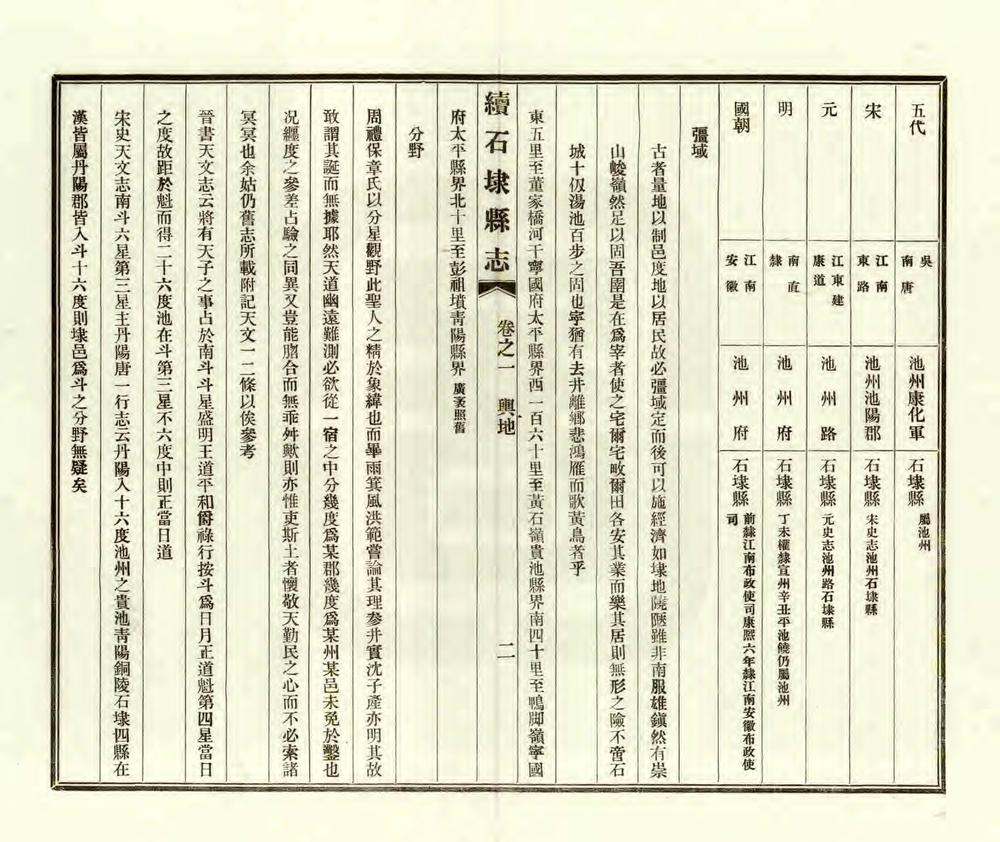 五代 吳南唐 池州康化軍 石埭縣 屬池州
宋 江南東路 池州池陽郡 石埭縣 宋史志池州石埭縣
元 江東建康道 池州路 石埭縣 元史志池州路石埭縣
明 南直隸 池州府 石埭縣 丁未權隸宣州辛丑平池饒仍屬池州
國朝 江南安徽 池州府 石埭縣 前隸江南布政使司康熙六年隸江南安徽布政使司
彊域
古者量地以制邑度地以居民故必彊域定而後可以施經濟如埭地陿雖非南服雄鎭然有崇
山峻嶺然足以固吾圉是在爲宰者使之宅爾宅畋爾田各安其業而樂其居則無形之險不啻石
城十仭湯池百步之固也寧猶有去井離鄉悲鴻雁而歌黃鳥者乎
東五里至董家橋河干寧國府太平縣界西一百六十里至黃石嶺貴池縣界南四十里至鴨脚嶺寧國
府太平縣界北十里至彭祖墳青陽縣界 廣袤照舊
續石埭縣志 卷之一 輿地 二
分野
周禮保章氏以分星觀野此聖人之精於象緯也而畢雨箕風洪範嘗論其理參井實沈子產亦明其故
敢謂其誕而無據耶然天道幽遠難測必欲從一宿之中分幾度爲某郡幾度爲某州某邑未免於鑿也
况纏度之參差占驗之同異又豈能脗合而無乖舛歟則亦惟吏斯土者懷敬天勤民之心而不必索諸
冥冥也余姑仍舊志所載附記天文一二條以俟參考
晉書天文志云將有天子之事占於南斗斗星盛明王道平和爵祿行按斗爲日月正道魁第四星當日
之度故距於魁而得二十六度池在斗第三星不六度中則正當日道
宋史天文志南斗六星第三星主丹陽唐一行志云丹陽入十六度池州之貴池青陽銅陵石埭四縣在
漢皆屬丹陽郡皆入斗十六度則埭邑爲斗之分野無疑矣